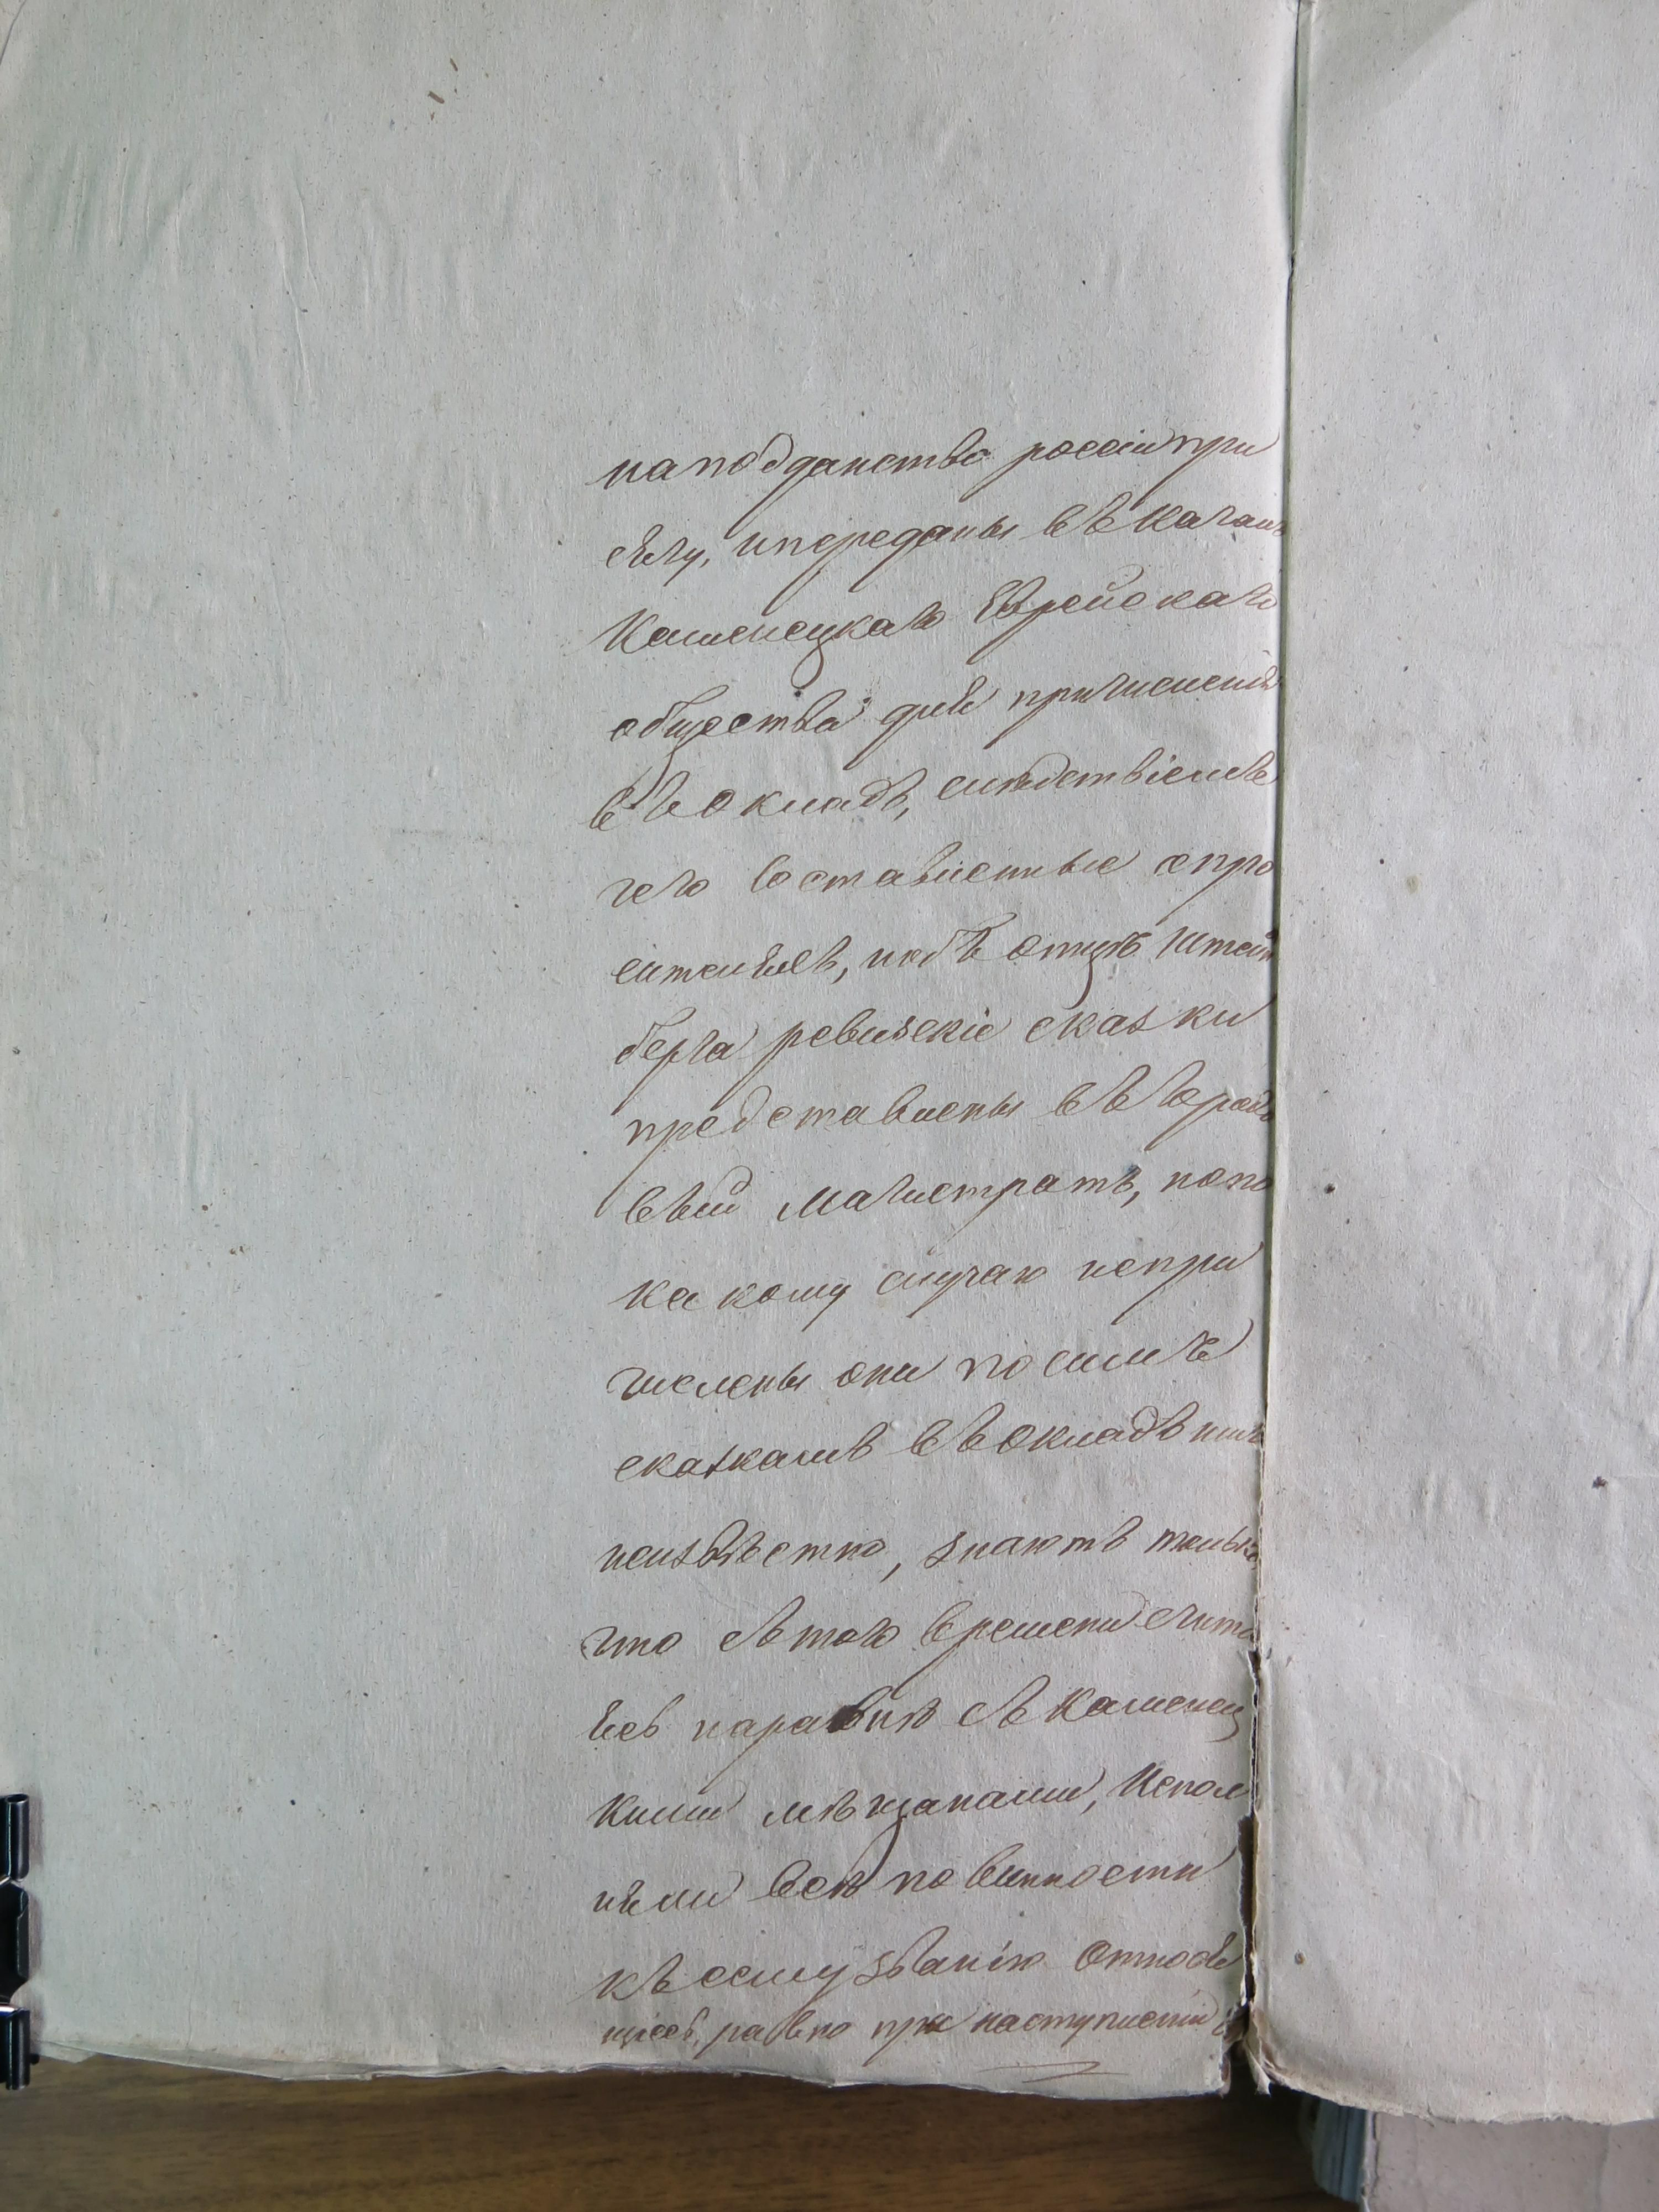 на подданство россіи при
сягу, и переданы въ Кагалъ
Каменецкаго Еврейскаго
общества для причисленія
въ окладъ, слѣдствіемъ
чего составленные о про
сителяхъ, и объ отцѣ Штейн
берга ревизскіе сказки
представлены въ Градо
вый Магистратъ, но по
какому случаю непри
числены они по симъ
сказкамъ въ окладъ имъ
неизвѣстно, знаютъ только
что съ того времени счита
ясь наравнѣ съ Каменец
кими мѣщанами, Испол
няли всѣ повинности
къ сему званію Относя
щіесь, равно при наступленіи